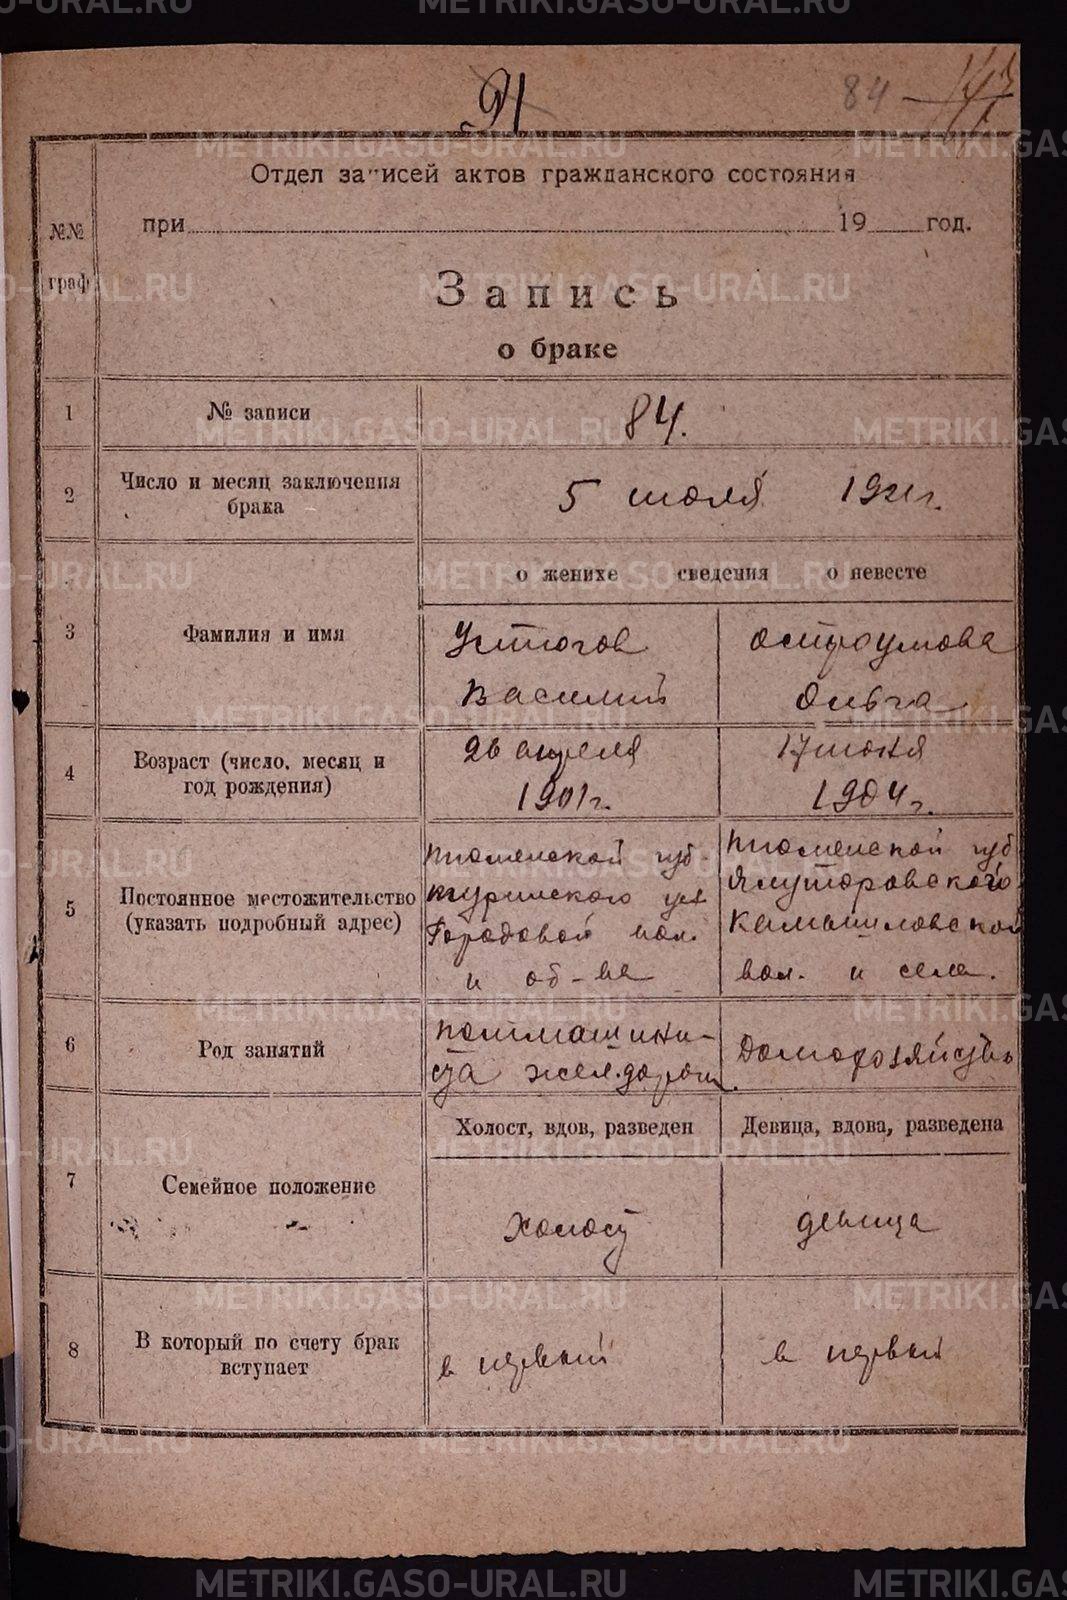 91
84
Отдел записей актов гражданского состояния
при 19 год.
№№ граф
Запись
о браке
1 № записи 84.
2 Число и месяц заключения брака 5 июля 1921 г.
о женихе сведения о невесте
3 Фамилия и имя
Устюгов Василий
Остроумова Ольга
4 Возраст (число, месяц и год рождения)
26 апреля 1901 г.
17 июня 1904 г.
5 Постоянное местожительство (указать подробный адрес)
Тюменской губ.
Туринского уез
Городовой вол.
и об-ва
Тюменской губ
Ялуторовского
вол. и села.
6 Род занятий
жел. дороги
Домохозяйств
7 Семейное положение
Холост, вдов, разведен
Девица, вдова, разведена
Холост
девица
8 В который по счету брак вступает
в первый
в первый
METRIKI.GASO-URAL.RU